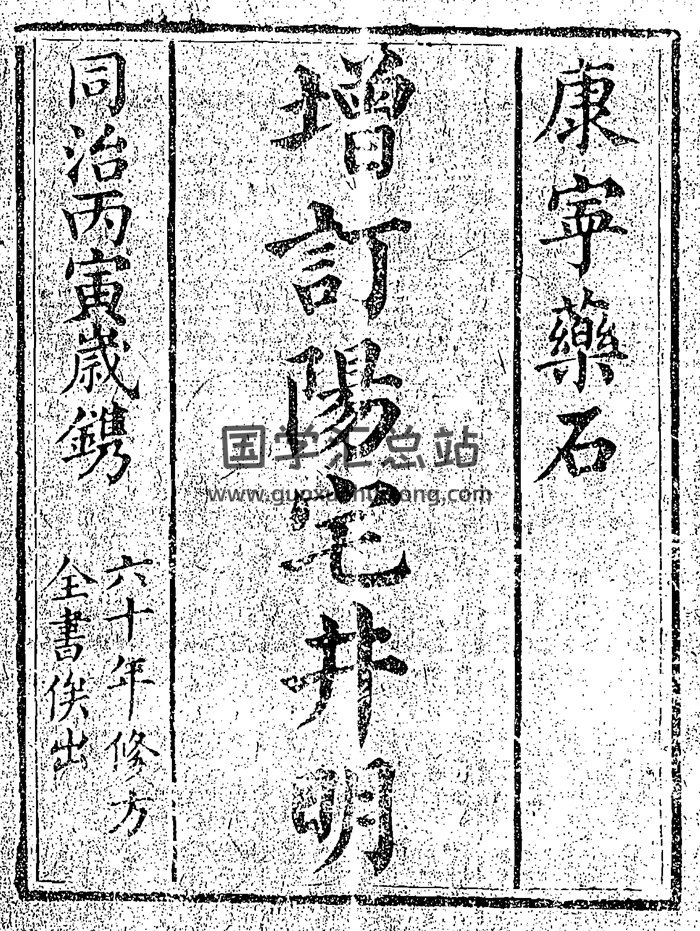 康寧藥石
增訂陽宅井明
同治丙寅歲鐫
六十年修方
全書俟出
国学汇总站
www.guoxuehuizong.com